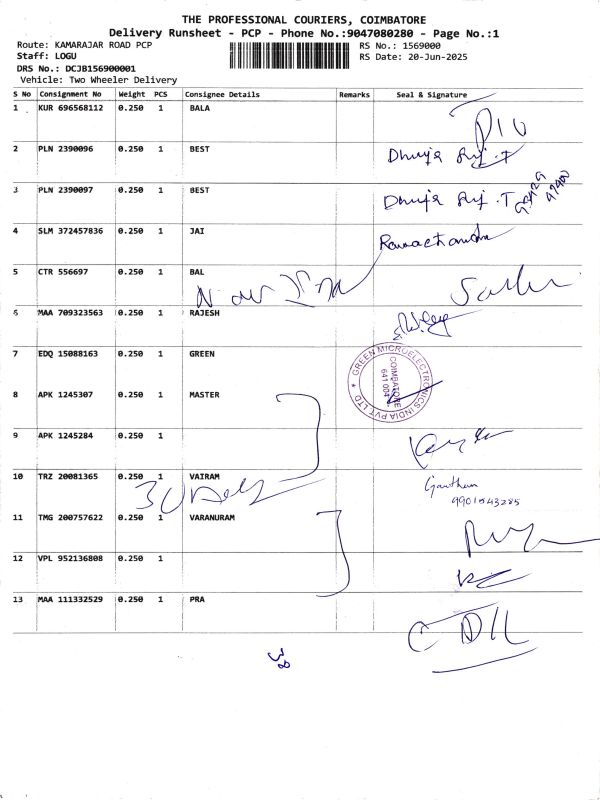 THE PROFESSIONAL COURIERS, COIMBATORE
Delivery Runsheet - PCP - Phone No.:9047080280 - Page No.:1
Route: KAMARAJAR ROAD PCP
RS No.: 1569000
Staff: LOGU
RS Date: 20-Jun-2025
DRS No.: DCJB156900001
Vehicle: Two Wheeler Delivery
S No Consignment No Weight PCS Consignee Details Remarks Seal & Signature
1 KUR 696568112 0.250 1 BALA
2 PLN 2390096 0.250 1 BEST
3 PLN 2390097 0.250 1 BEST
4 SLM 372457836 0.250 1 JAI Ramachandra
5 CTR 556697 0.250 1 BAL
6 MAA 709323563 0.250 1 RAJESH
7 EDQ 15088163 0.250 1 GREEN
GREEN MICROELECTRONICS INDIA PVT LTD
COIMBATORE
641 004
8 APK 1245307 0.250 1 MASTER
9 APK 1245284 0.250 1
10 TRZ 20081365 0.250 1 VAIRAM Gautham
9901543285
11 TMG 200757622 0.250 1 VARANURAM
12 VPL 952136808 0.250 1
13 MAA 111332529 0.250 1 PRA